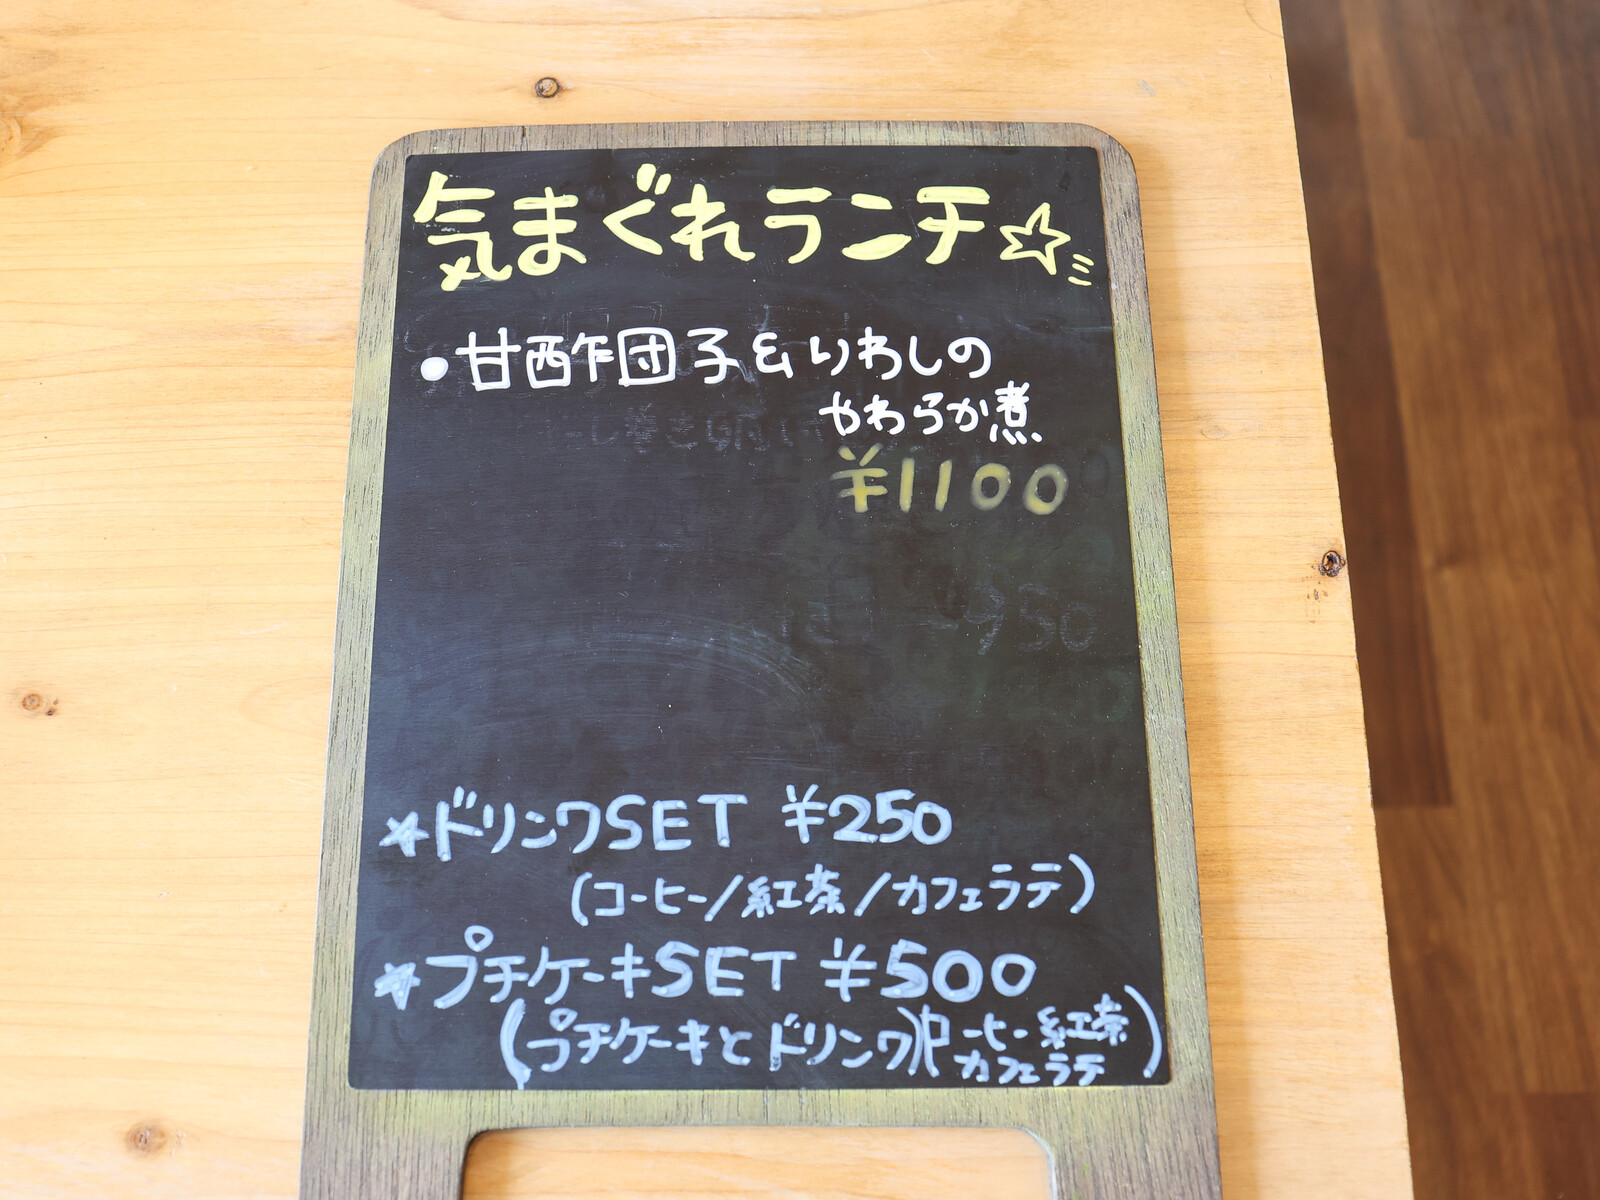 気まぐれランチ☆
・甘酢団子&いわしの
やわらか煮
¥1100
950
★ドリンクSET ¥250
(コーヒー/紅茶/カフェラテ)
★プチケーキSET ¥500
(プチケーキとドリンク)
コーヒー 紅茶
カフェラテ